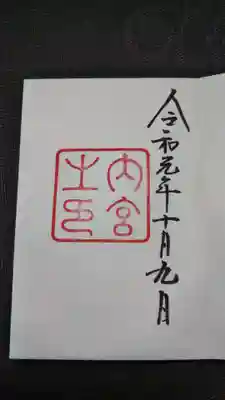 令和元年十月九日
内宮
之印